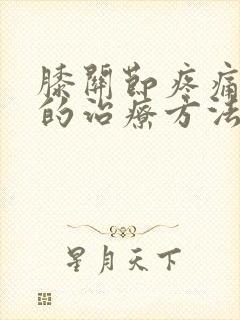 膝關節疼痛
的治療方法
星月天下